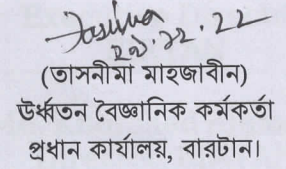 Tasnima
২১.১২.২২
(তাসনীমা মাহজাবীন)
উর্ধ্বতন বৈজ্ঞানিক কর্মকর্তা
প্রধান কার্যালয়, বারটান।